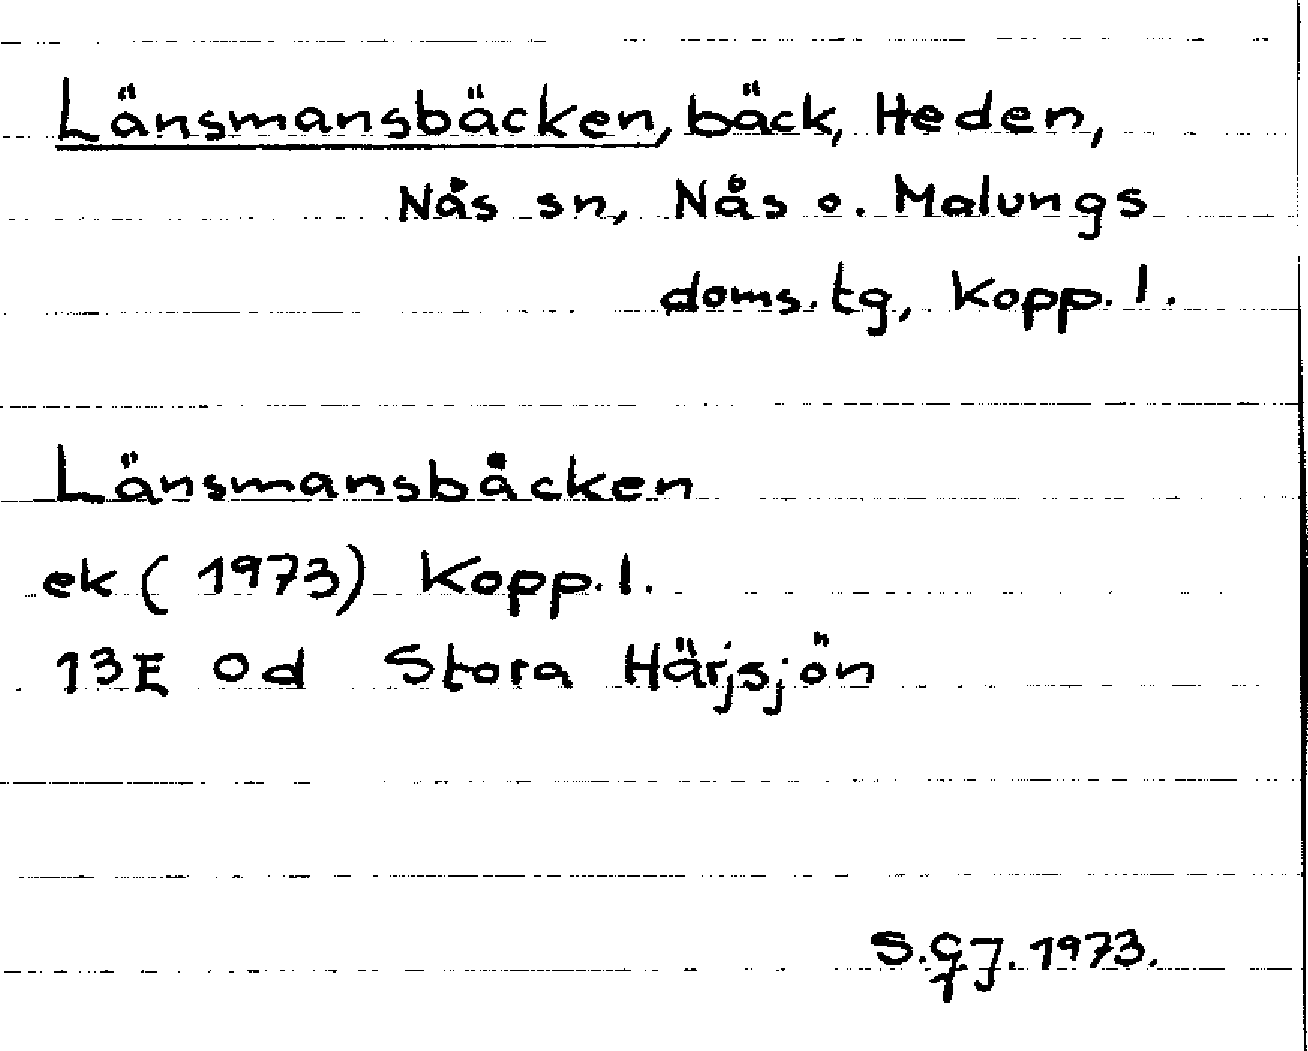 Länsmansbäcken, bäck, Heden,
Nås sn, Nås o. Malungs
doms.tg, Kopp. l.
Länsmansbäcken
ek (1973) Kopp. l.
13E 0d Stora Härjsjön
S.GJ. 1973.